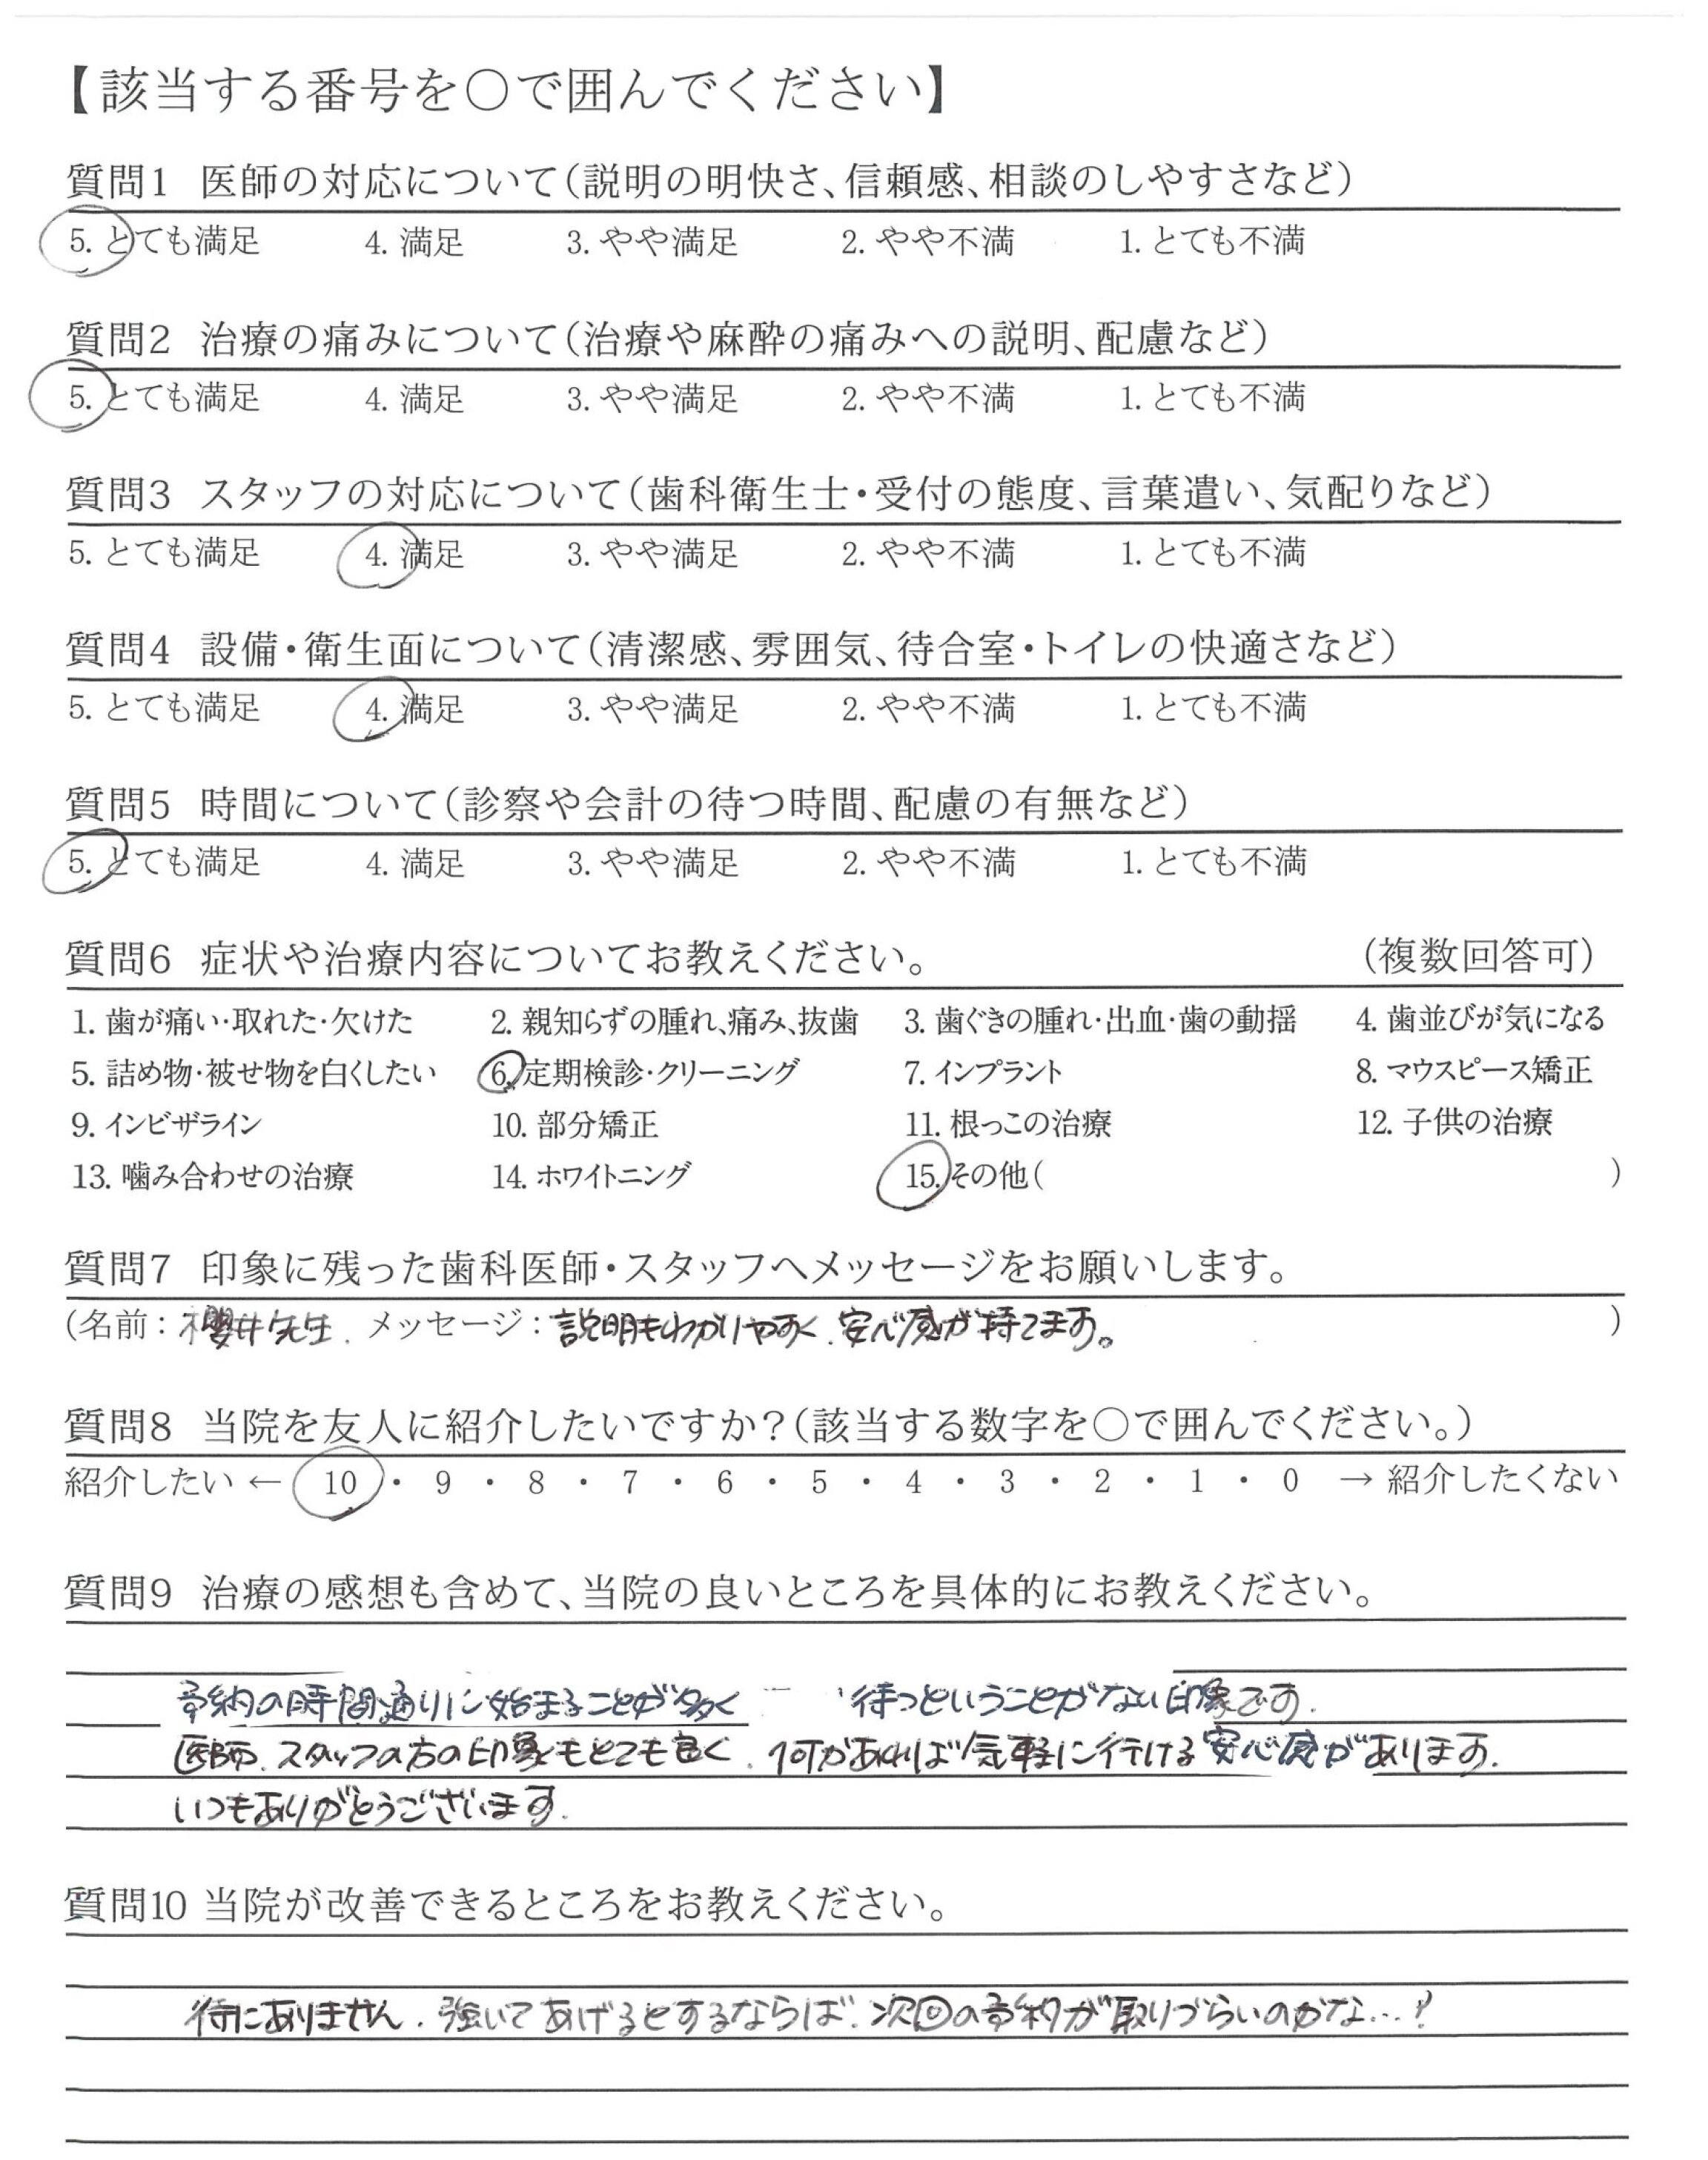 【該当する番号を〇で囲んでください】
質問1 医師の対応について(説明の明快さ、信頼感、相談のしやすさなど)
5. とても満足 4. 満足 3. やや満足 2. やや不満 1. とても不満
質問2 治療の痛みについて(治療や麻酔の痛みへの説明、配慮など)
5. とても満足 4. 満足 3. やや満足 2. やや不満 1. とても不満
質問3 スタッフの対応について(歯科衛生士・受付の態度、言葉遣い、気配りなど)
5. とても満足 4. 満足 3. やや満足 2. やや不満 1. とても不満
質問4 設備・衛生面について(清潔感、雰囲気、待合室・トイレの快適さなど)
5. とても満足 4. 満足 3. やや満足 2. やや不満 1. とても不満
質問5 時間について(診察や会計の待つ時間、配慮の有無など)
5. とても満足 4. 満足 3. やや満足 2. やや不満 1. とても不満
質問6 症状や治療内容についてお教えください。 (複数回答可)
1. 歯が痛い・取れた・欠けた 2. 親知らずの腫れ、痛み、抜歯 3. 歯ぐきの腫れ・出血・歯の動揺 4. 歯並びが気になる
5. 詰め物・被せ物を白くしたい 6. 定期検診・クリーニング 7. インプラント 8. マウスピース矯正
9. インビザライン 10. 部分矯正 11. 根っこの治療 12. 子供の治療
13. 噛み合わせの治療 14. ホワイトニング 15. その他( )
質問7 印象に残った歯科医師・スタッフへメッセージをお願いします。
(名前：櫻井先生. メッセージ：説明もわかりやすく、安心感が持てます。 )
質問8 当院を友人に紹介したいですか？(該当する数字を〇で囲んでください。)
紹介したい ← 10 ・ 9 ・ 8 ・ 7 ・ 6 ・ 5 ・ 4 ・ 3 ・ 2 ・ 1 ・ 0 → 紹介したくない
質問9 治療の感想も含めて、当院の良いところを具体的にお教えください。
予約の時間通りに始まることが多く 待つということがない印象です.
医師、スタッフの方の印象もとても良く、何かあれば気軽に行ける安心感があります.
いつもありがとうございます.
質問10 当院が改善できるところをお教えください。
特にありません. 強いてあげるとするならば、次回の予約が取りづらいのかな…？